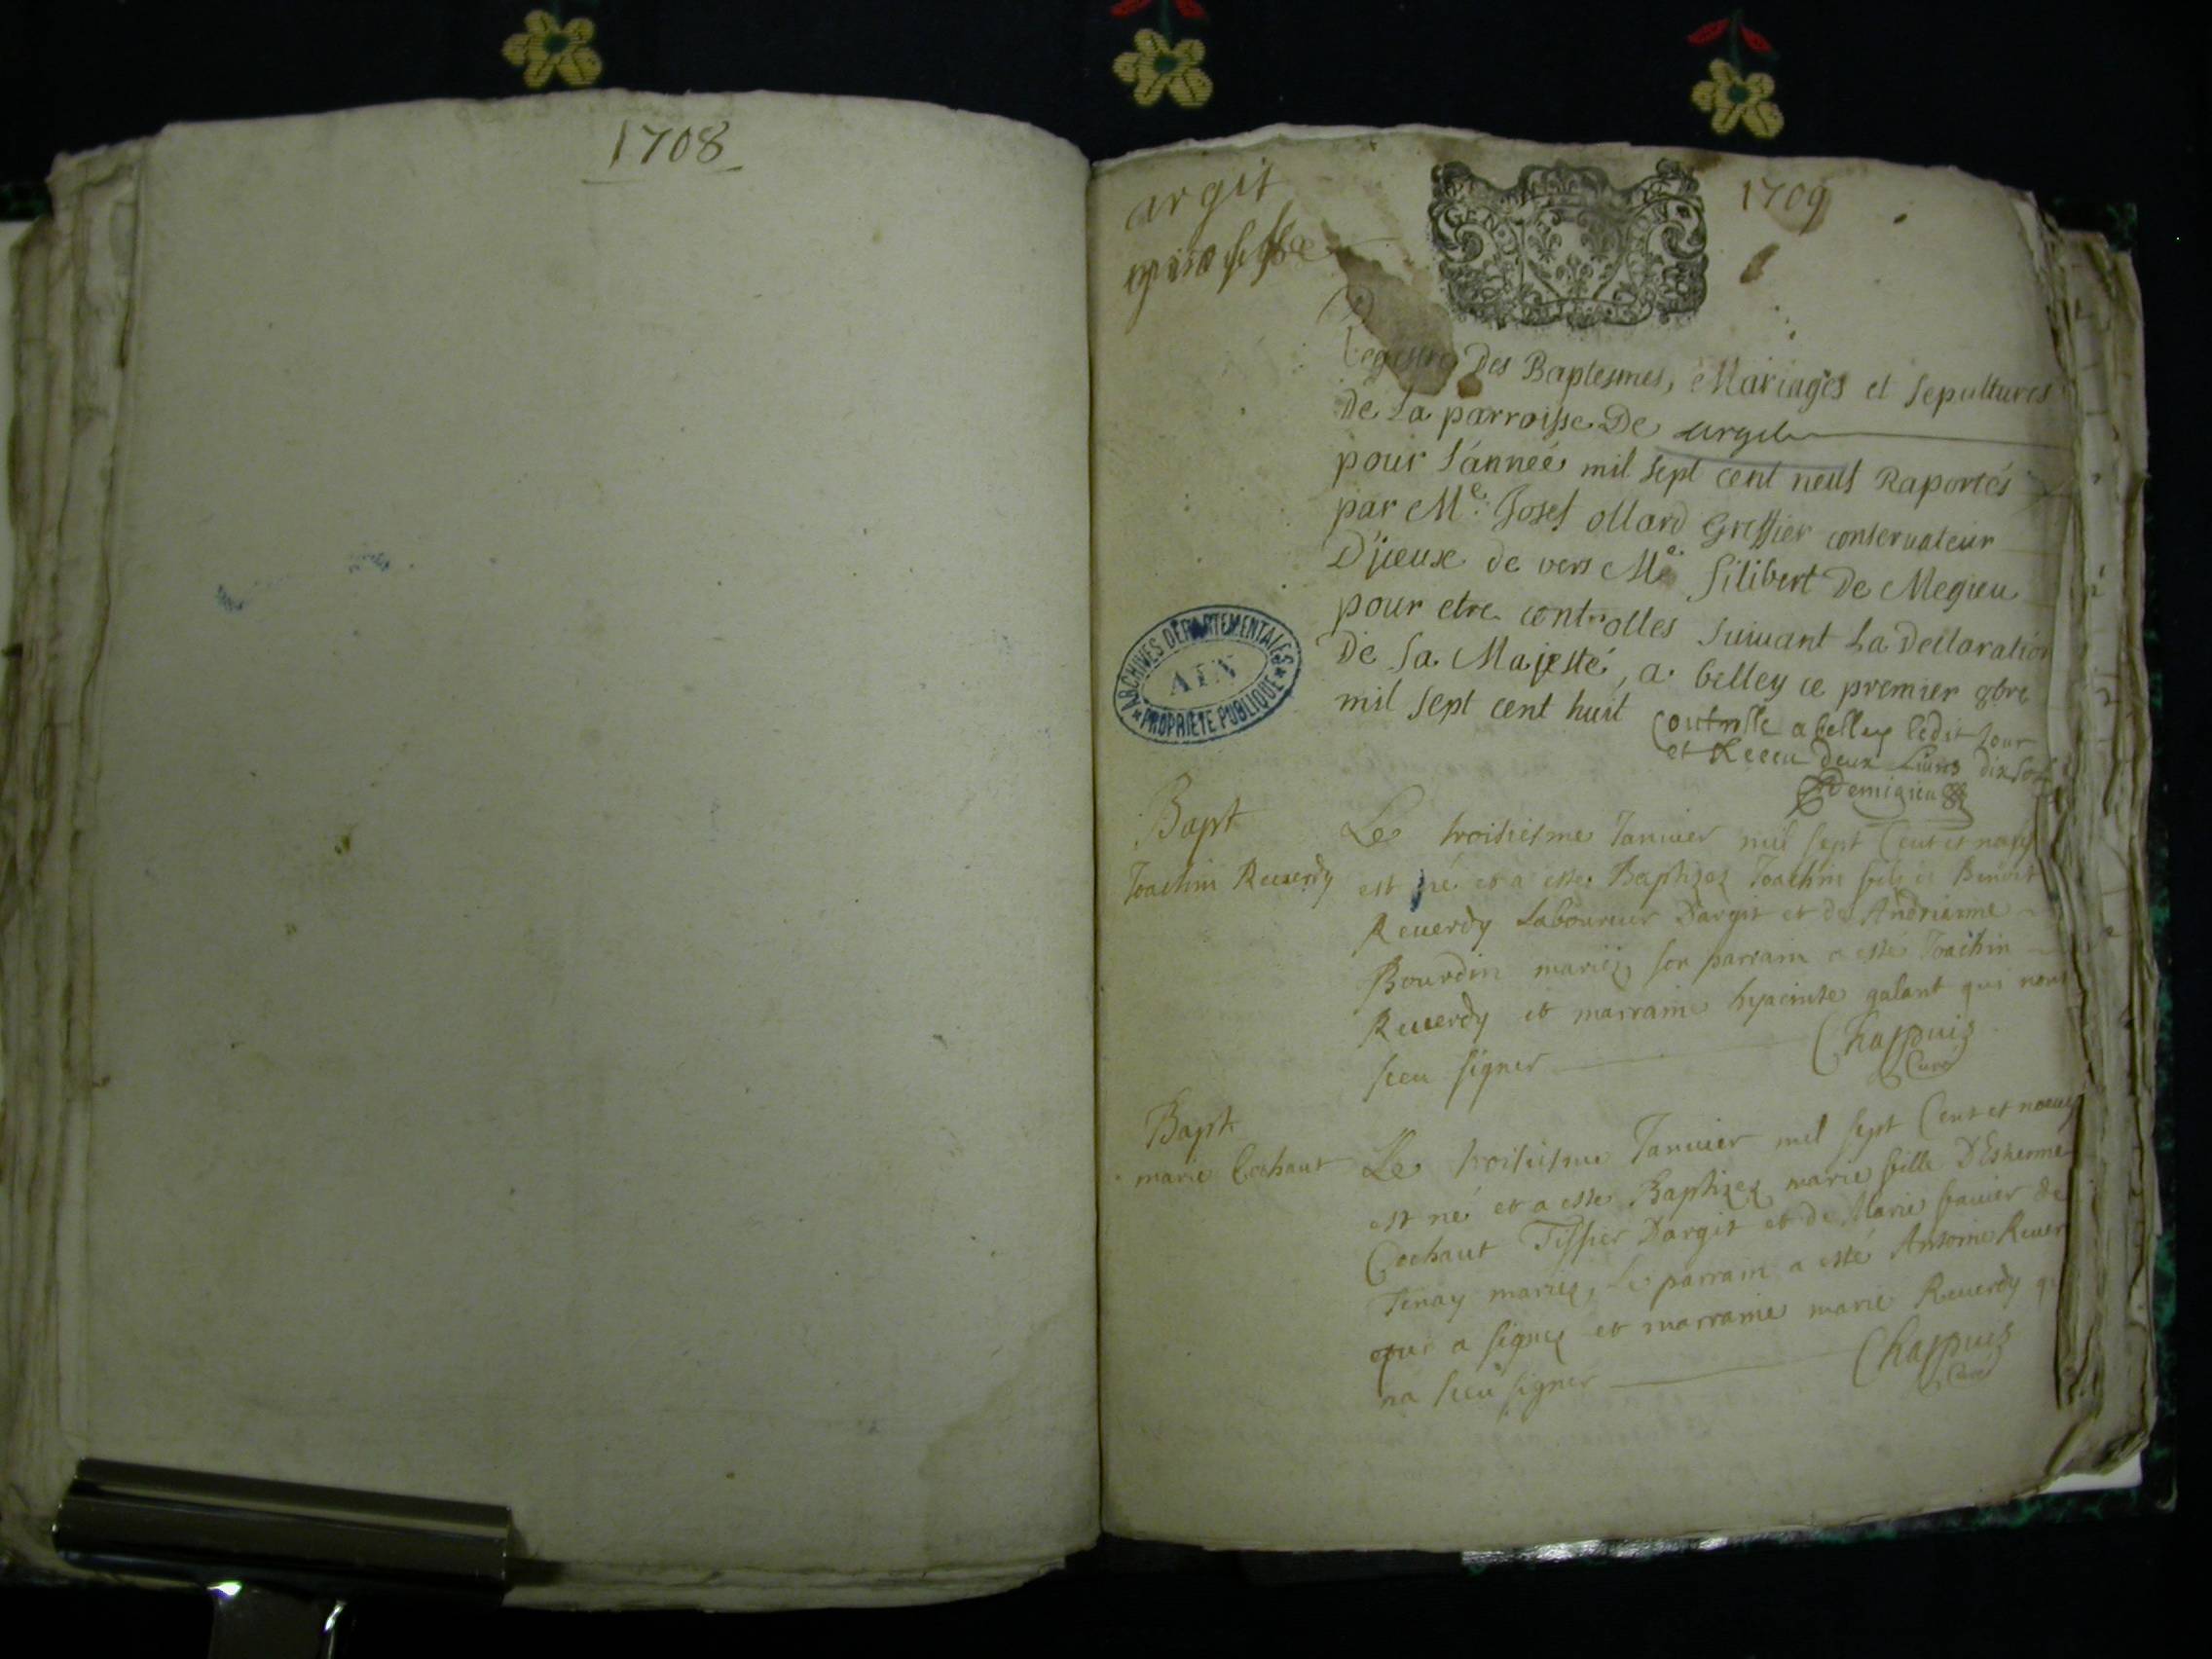 1708
argit
1709
GEN
Registre Des Baptesmes, Mariages et sepultures
De La parroisse De argit
pour L'année mil sept cent neuf Raportés
par Me. Josef ollard Greffier conservateur
D'jceux de vers Me. filibert De Megieu
pour etre controlles suivant La Declaration
De sa Majesté, a belley ce premier 9bre
mil sept cent huit
Controlle a belley ledit jour
et Receu deux Liures dix sols
Demigieu
ARCHIVES DÉPARTEMENTALES
AIN
PROPRIÉTÉ PUBLIQUE
Bapt
Joachin Reuerdy
Le troisiesme Januier mil sept Cent et
est né et a este Baptizez Joachin fils de Benoit
Reuerdy Laboureur Dargit et de Andrienne
Bourdin mariez son parrain a esté Joachin
Reuerdy et marraine hyacinte galant qui nont
sceu signer
Chappuis
Curé
Bapt
marie Cochaut
Le troisiesme Januier mil sept Cent et
est né et a este Baptizez marie fille D'Estienne
Cochaut Tissier Dargit et de Marie fauier de
Tenay mariez, Le parrain a esté Antoine Reuer
qui a signez et marraine marie Reuerdy qui
na sceu signer
Chappuis
Curé